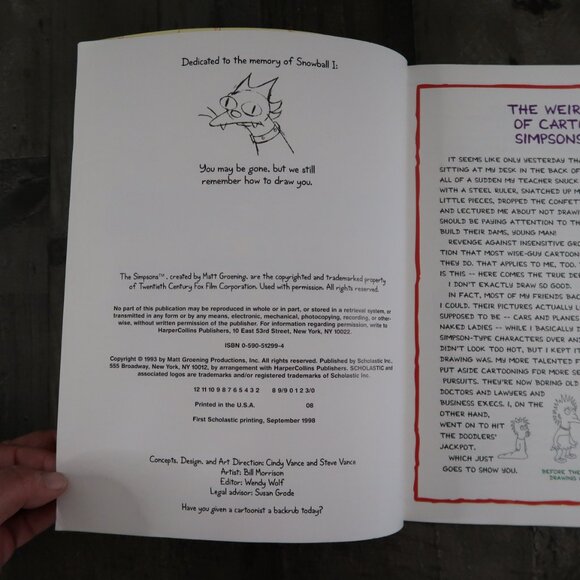 Dedicated to the memory of Snowball I:
You may be gone, but we still
remember how to draw you.
The Simpsons™, created by Matt Groening, are the copyrighted and trademarked property
of Twentieth Century Fox Film Corporation. Used with permission. All rights reserved.
No part of this publication may be reproduced in whole or in part, or stored in a retrieval system, or
transmitted in any form or by any means, electronic, mechanical, photocopying, recording, or other-
wise, without written permission of the publisher. For information regarding permission, write to
HarperCollins Publishers, 10 East 53rd Street, New York, NY 10022.
ISBN 0-590-51299-4
Copyright © 1993 by Matt Groening Productions, Inc. All rights reserved. Published by Scholastic Inc.,
555 Broadway, New York, NY 10012, by arrangement with HarperCollins Publishers. SCHOLASTIC and
associated logos are trademarks and/or registered trademarks of Scholastic Inc.
12 11 10 9 8 7 6 5 4 3 2 8 9/9 0 1 2 3/0
Printed in the U.S.A. 08
First Scholastic printing, September 1998
Concepts, Design, and Art Direction: Cindy Vance and Steve Vance
Artist: Bill Morrison
Editor: Wendy Wolf
Legal advisor: Susan Grode
Have you given a cartoonist a backrub today?
THE WEIR
OF CART
SIMPSONS
IT SEEMS LIKE ONLY YESTERDAY THA
SITTING AT MY DESK IN THE BACK OF
ALL OF A SUDDEN MY TEACHER SNUCK
WITH A STEEL RULER, SNATCHED UP M
LITTLE PIECES, DROPPED THE CONFETT
AND LECTURED ME ABOUT NOT DRAWIN
SHOULD BE PAYING ATTENTION TO TH
BUILD THEIR DAMS, YOUNG MAN!
REVENGE AGAINST INSENSITIVE GRO
TION THAT MOST WISE-GUY CARTOON
THEY DO. THAT APPLIES TO ME, TOO.
IS THIS -- HERE COMES THE TRUE DE
I DON'T EXACTLY DRAW SO GOOD.
IN FACT, MOST OF MY FRIENDS BAC
I COULD. THEIR PICTURES ACTUALLY L
SUPPOSED TO BE -- CARS AND PLANES
NAKED LADIES -- WHILE I BASICALLY S
SIMPSON-TYPE CHARACTERS OVER AN
DIDN'T LOOK TOO HOT, BUT I KEPT IT
DRAWING WAS. MY MORE TALENTED F
PUT ASIDE CARTOONING FOR MORE SE
PURSUITS. THEY'RE NOW BORING OLD
DOCTORS AND LAWYERS AND
BUSINESS EXECS. I, ON THE
OTHER HAND,
WENT ON TO HIT
THE DOODLERS'
JACKPOT.
WHICH JUST
GOES TO SHOW YOU.
BEFORE THE
DRAWING